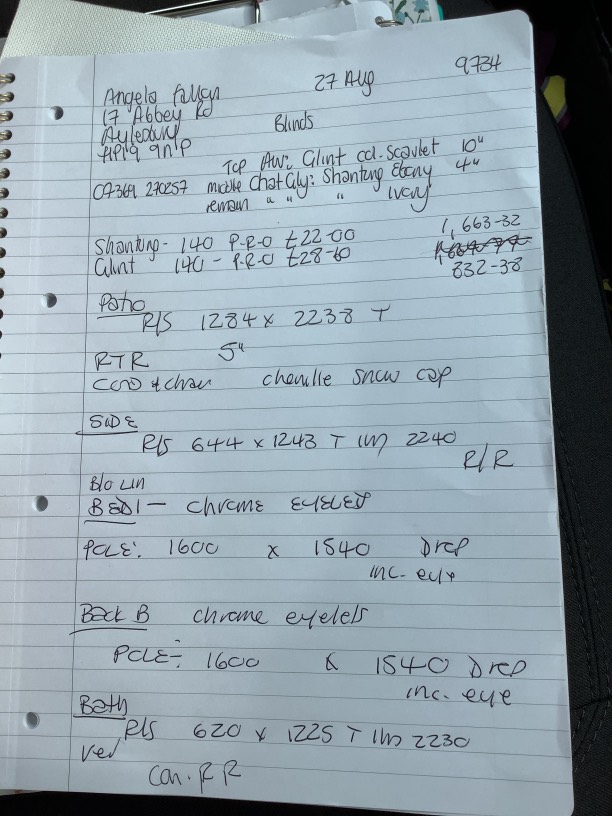 27 Aug 9734
Angela Fallon
17 Abbey Rd
Aylesbury
HP19 9NP
Blinds
Top AW: Glint col. Scarlet 10"
07369 270257 middle Chat Gly: Shantung Ebony 4"
remain " " " Ivory
Shantung - 140 P-R-O £22-00 1,663-32
Glint 140 - P-R-O £28-60
832-38
Patio
R/S 1284 x 2238 T
RTR 5"
cord + chain chenille snow cap
SIDE
R/S 644 x 1243 T 1m 2240
R/R
B/O Lin
BED1 - chrome EYELET
POLE: 1600 x 1540 Drop
inc. eye
Back B chrome eyelets
POLE:- 1600 x 1540 Drop
inc. eye
Bath
R/S 620 x 1225 T 1m 2230
Ver
Can. R R